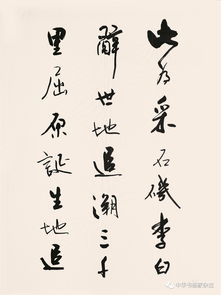 此为采石矶李白
辞世地追溯三千
里屈原誕生地追
中华书画家杂志